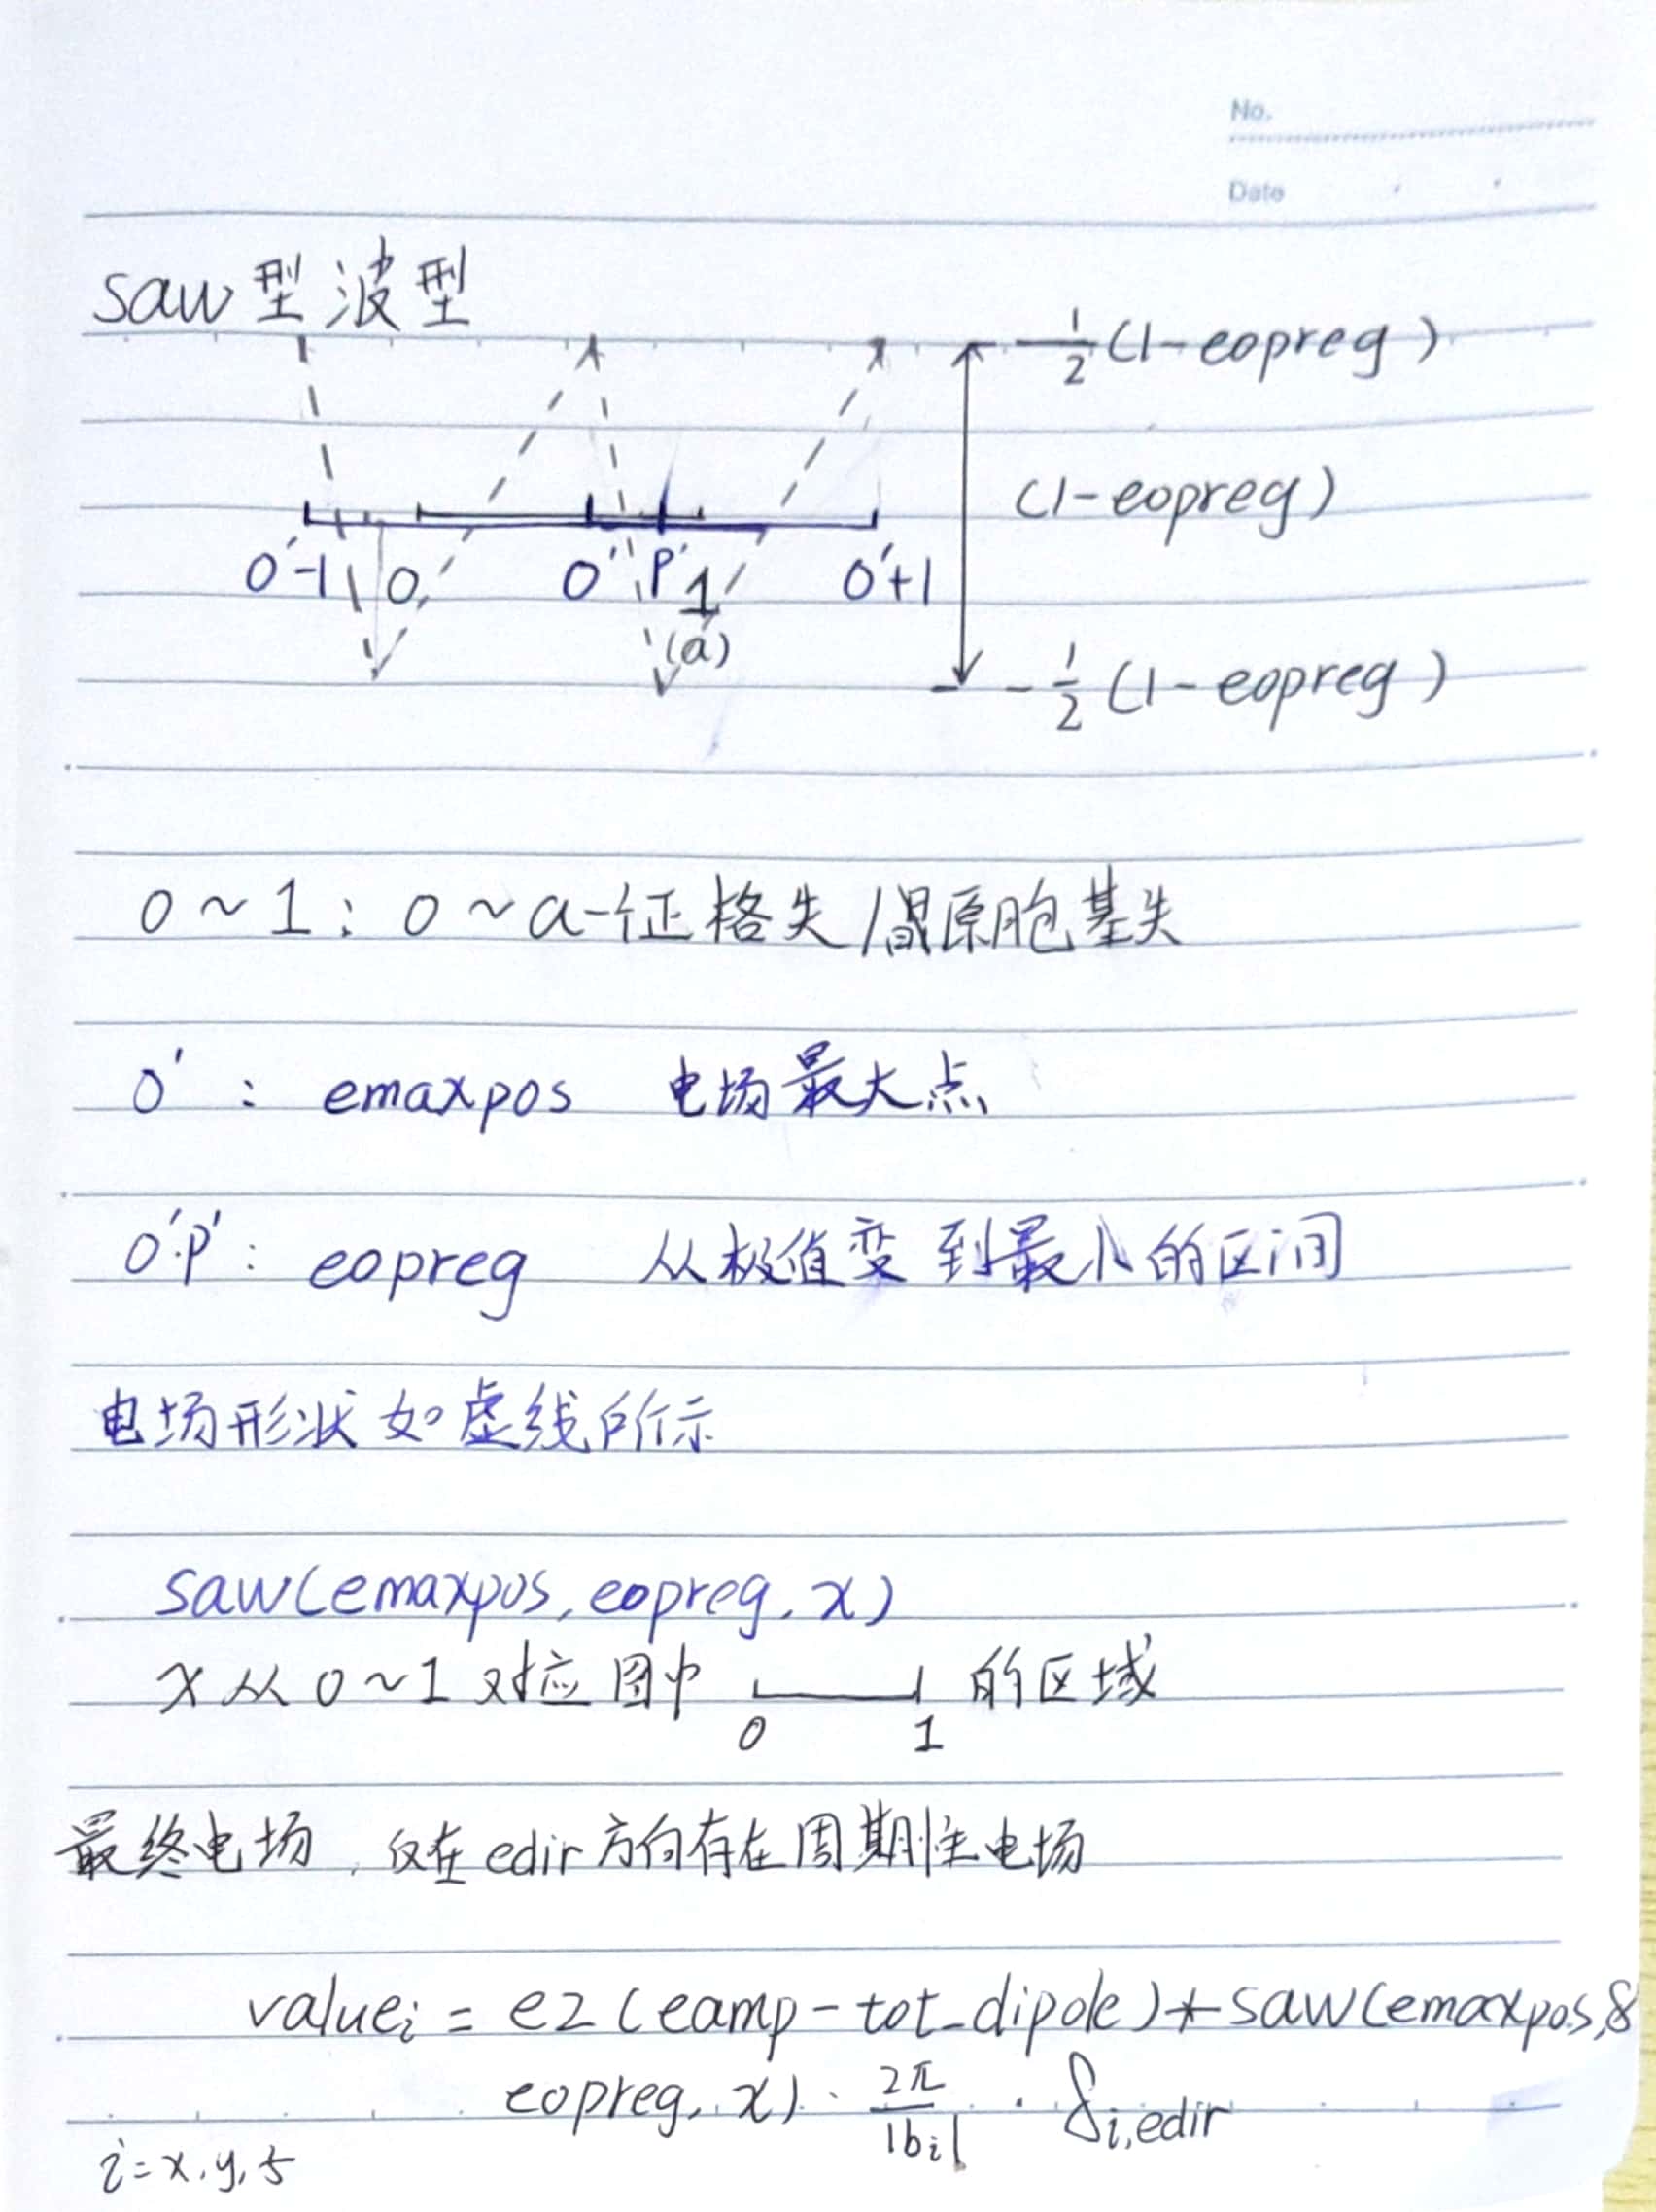 No.
Date
saw型波型
1/2 (1-eopreg)
(1-eopreg)
0'-1 0 0' P' 1 0'+1
(a)
-1/2 (1-eopreg)
0~1: 0~a-征格失/晶原胞基失
0': emaxpos 电场最大点
0'P': eopreg 从极值变到最小的区间
电场形状如虚线所示
saw(emaxpos, eopreg, x)
x从0~1对应图中 的区域
0 1
最终电场,仅在edir方向存在周期性电场
valueᵢ = e2(eamp-tot_dipole)*saw(emaxpos,&
eopreg, x) · 2π/|bᵢ| · δi,edir
i=x,y,z